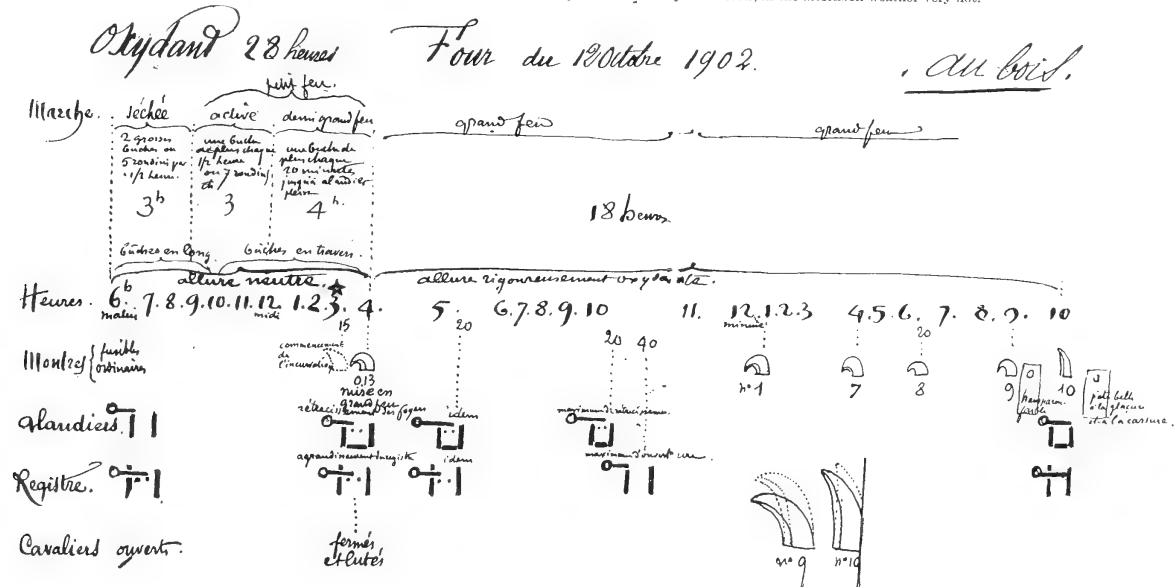 Oxydant 28 heures
Four du 12 Octobre 1902.
. au bois.
petit feu.
Marche. séchée active demi grand feu grand feu grand feu
2 grosses
bûches ou
5 rondins par
1/2 heure.
3h
une bûche
de plus chaque
1/2 heure
ou 7 rondins
3
une bûche de
plus chaque
20 minutes
jusqu'à alandier
plein
4h.
18 heures
bûches en long. bûches en travers.
allure neutre. allure rigoureusement oxydante.
Heures. 6h. 7. 8. 9. 10. 11. 12 1. 2. 3. 4. 5. 6. 7. 8. 9. 10 11. 12. 1. 2. 3 4. 5. 6. 7. 8. 9. 10
matin midi 15 20 minuit 20
20 40
Montres fusibles
ordinaires
commencement
de
l'incurvation
0,13 n° 1 7 8 9 10
mise en
grand feu
pâte belle
à la glaçure
et à la cassure.
Alandiers. rétrécissement des foyers idem maximum de rétrécissement
Registre. agrandissement du registre idem maximum d'ouverture.
Cavaliers ouverts. fermés
et lutés
n° 9 n° 10